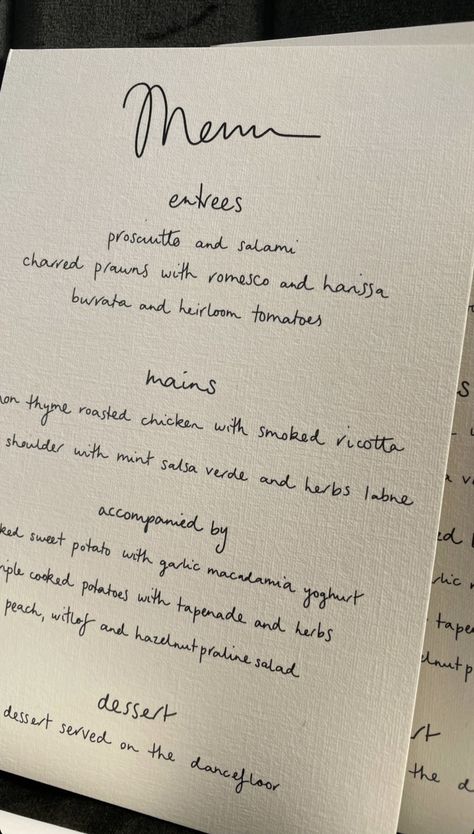 Menu
entrees
prosciutto and salami
charred prawns with romesco and harissa
burrata and heirloom tomatoes
mains
on thyme roasted chicken with smoked ricotta
shoulder with mint salsa verde and herbs labne
accompanied by
ked sweet potato with garlic macadamia yoghurt
iple cooked potatoes with tapenade and herbs
peach, witlof and hazelnut praline salad
dessert
dessert served on the dancefloor
s
ed
lic
tape
lnut p
rt
the d